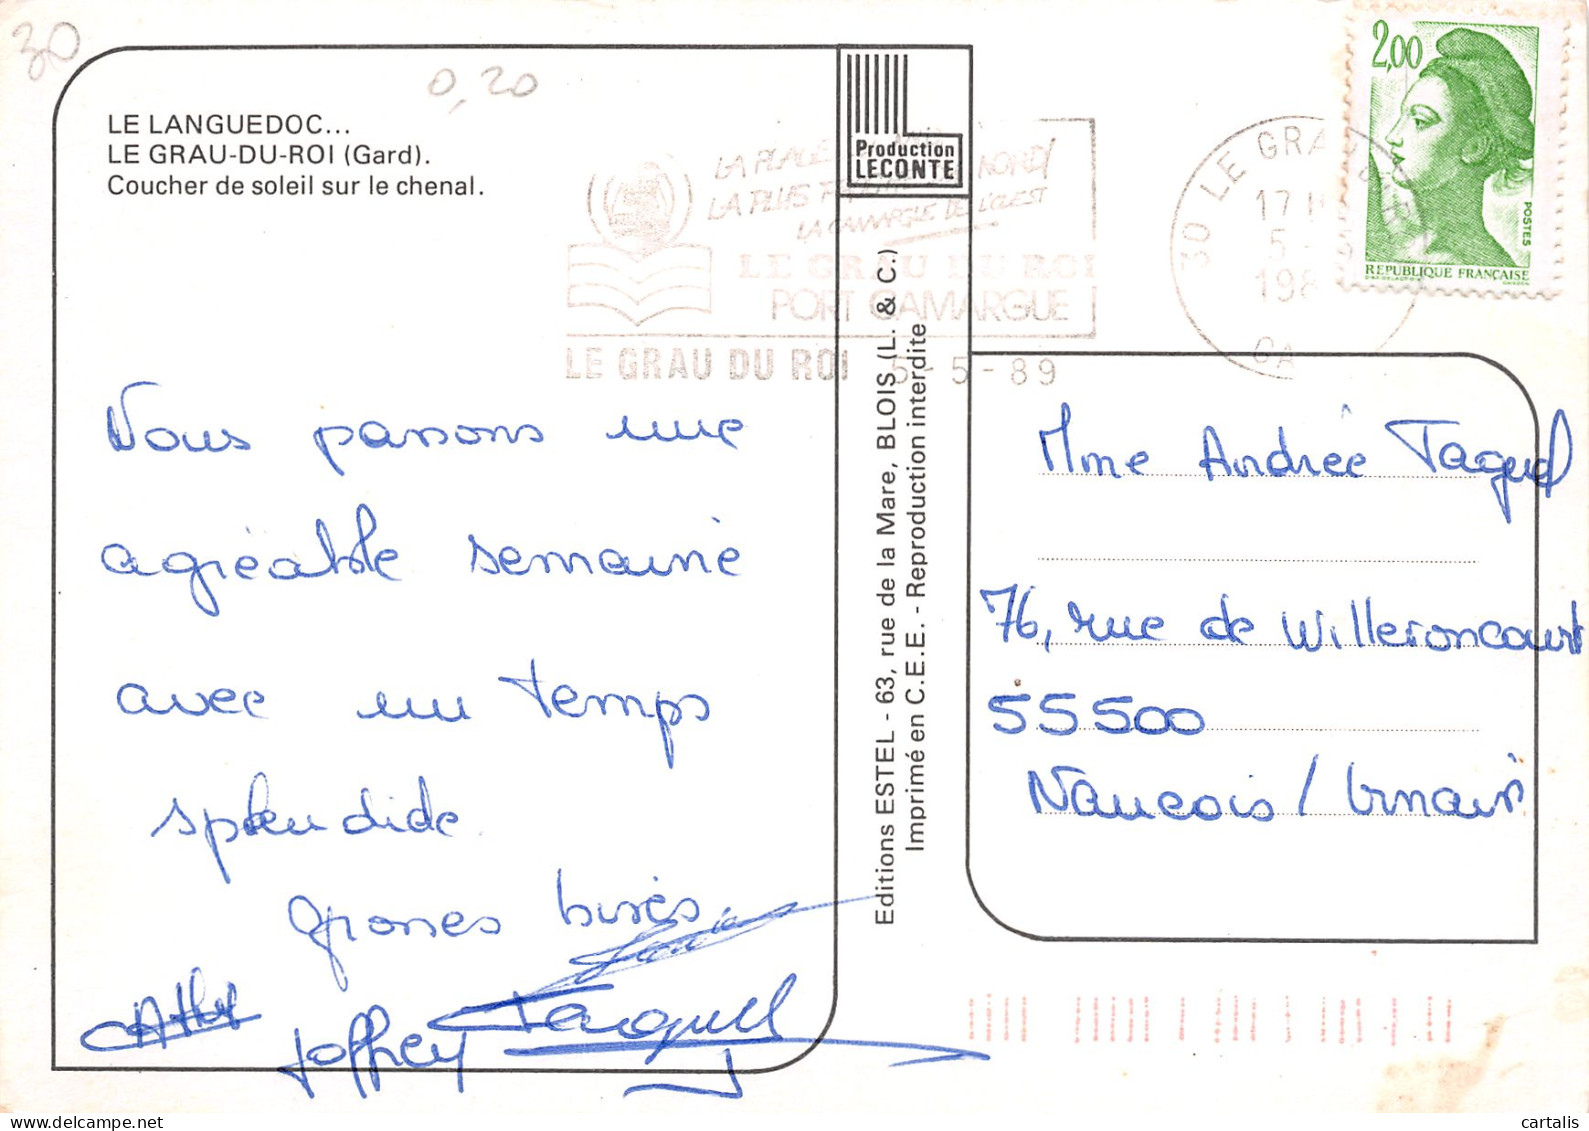 30
0,20
LE LANGUEDOC...
LE GRAU-DU-ROI (Gard).
Coucher de soleil sur le chenal.
Production
LECONTE
LA CAMARGUE DE L'OUEST
LE GRAU DU ROI
PORT CAMARGUE
LE GRAU DU ROI 5-5-89
30 LE GRAU
17 H
5 -
198
GA
2,00
POSTES
REPUBLIQUE FRANÇAISE
Nous passons une
agréable semaine
avec un temps
splendide
Grosses bises
Joffrey
Jacquel
Editions ESTEL - 63, rue de la Mare, BLOIS (L. & C.)
Imprimé en C.E.E. - Reproduction interdite
Mme Andrée Jaquel
76, rue de Willeroncourt
55500
Nançois / Ornain
cartalis
delcampe.net